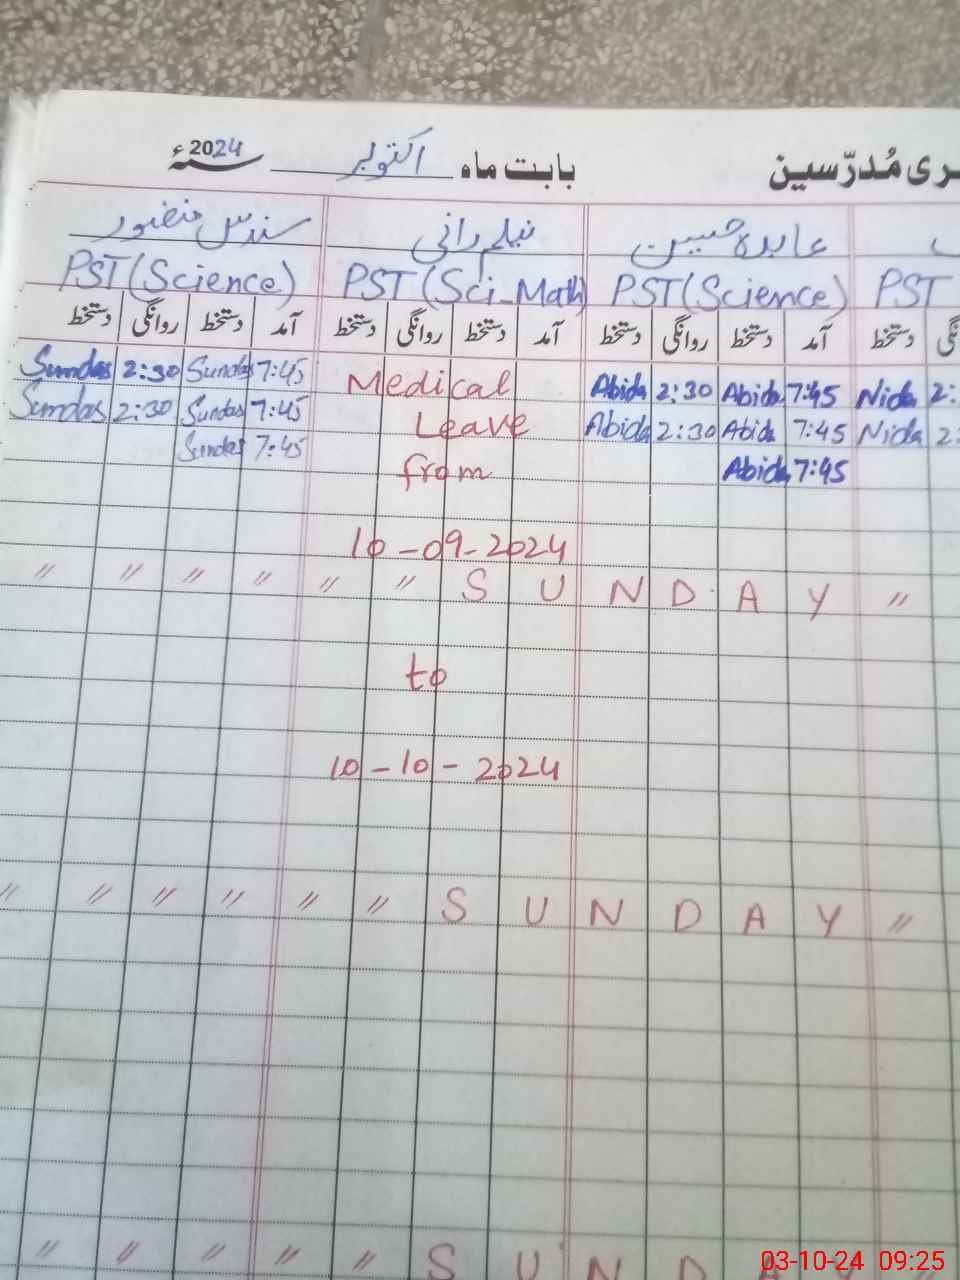 ری مُدرّسین بابت ماہ اکتوبر 2024ء
عابدہ حسین نیلم رانی سندس منصور
PST (Science) PST (Sci-Math) PST (Science) PST
دستخط روانگی دستخط آمد دستخط روانگی دستخط آمد دستخط روانگی دستخط آمد دستخط
Sundas 2:30 Sundas 7:45 Medical Abida 2:30 Abida 7:45 Nida 2:
Sundas 2:30 Sundas 7:45 Leave Abida 2:30 Abida 7:45 Nida 2:
Sundas 7:45 from Abida 7:45
10-09-2024
" " " " " " S U N D A Y "
to
10-10-2024
" " " " " " S U N D A Y "
" " " " " S U N D A
03-10-24 09:25